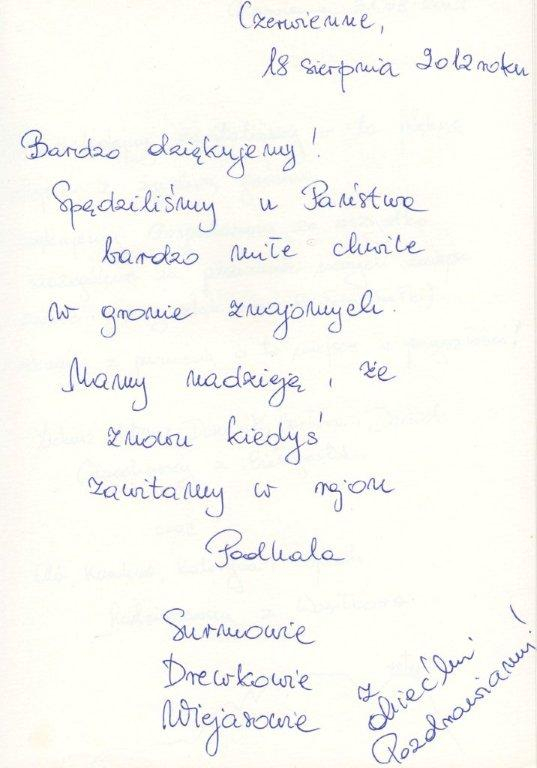 Czerwienne,
18 sierpnia 2012 roku
Bardzo dziękujemy!
Spędziliśmy u Państwa
bardzo miłe chwile
w gronie znajomych.
Mamy nadzieję, że
znowu kiedyś
zawitamy w rejon
Podhala
Surmowie
Drewkowie
Wiejasowie
z
dziećmi
Pozdrawiamy!